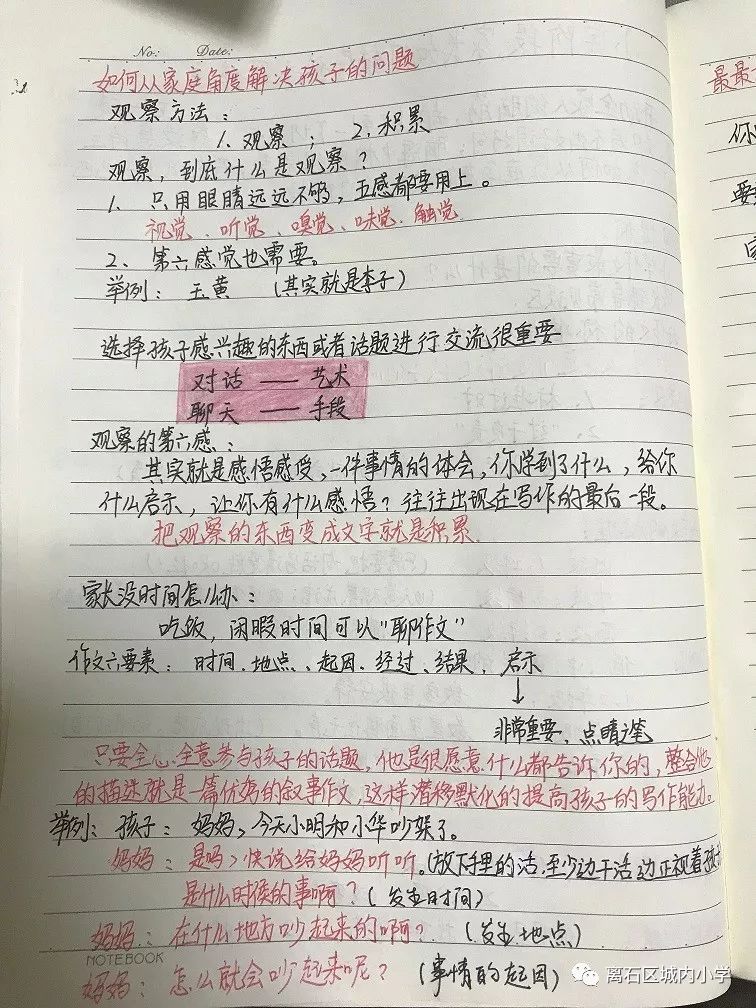 No: Date:
如何从家庭角度解决孩子的问题
观察方法:
1、观察 ; 2、积累
观察,到底什么是观察?
1、只用眼睛远远不够,五感都要用上。
视觉、听觉、嗅觉、味觉、触觉
2、第六感觉也需要。
举例: 玉黄 (其实就是李子)
选择孩子感兴趣的东西或者话题进行交流很重要
对话 —— 艺术
聊天 —— 手段
观察的第六感:
其实就是感悟感受,一件事情的体会,你学到了什么,给你
什么启示,让你有什么感悟?往往出现在写作的最后一段。
把观察的东西变成文字就是积累.
家长没时间怎么办:
吃饭,闲暇时间可以"聊作文"
作文六要素: 时间、地点、起因、经过、结果、启示
↓
非常重要、点睛之笔
只要全心全意参与孩子的话题,他是很愿意什么都告诉你的,整合他
的描述就是一篇优秀的叙事作文,这样潜移默化的提高孩子的写作能力。
举例: 孩子: 妈妈,今天小明和小华吵架了。
妈妈: 是吗,快说给妈妈听听。(放下手里的活,至少边干活边正视着孩
是什么时侯的事啊?(发生时间)
妈妈: 在什么地方吵起来的啊? (发生地点)
NOTEBOOK
妈妈: 怎么就会吵起来呢? (事情的起因)
最最
你
要
离石区城内小学